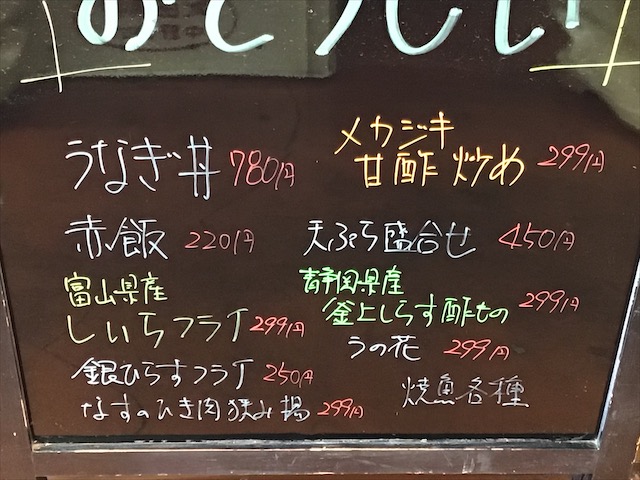 うなぎ丼 780円
赤飯 220円
富山県産
しいらフライ 299円
銀ひらすフライ 250円
なすのひき肉狭み揚 299円
メカジキ
甘酢炒め 299円
天ぷら盛合せ 450円
静岡県産
釜上しらす酢もの 299円
うの花 299円
焼魚各種